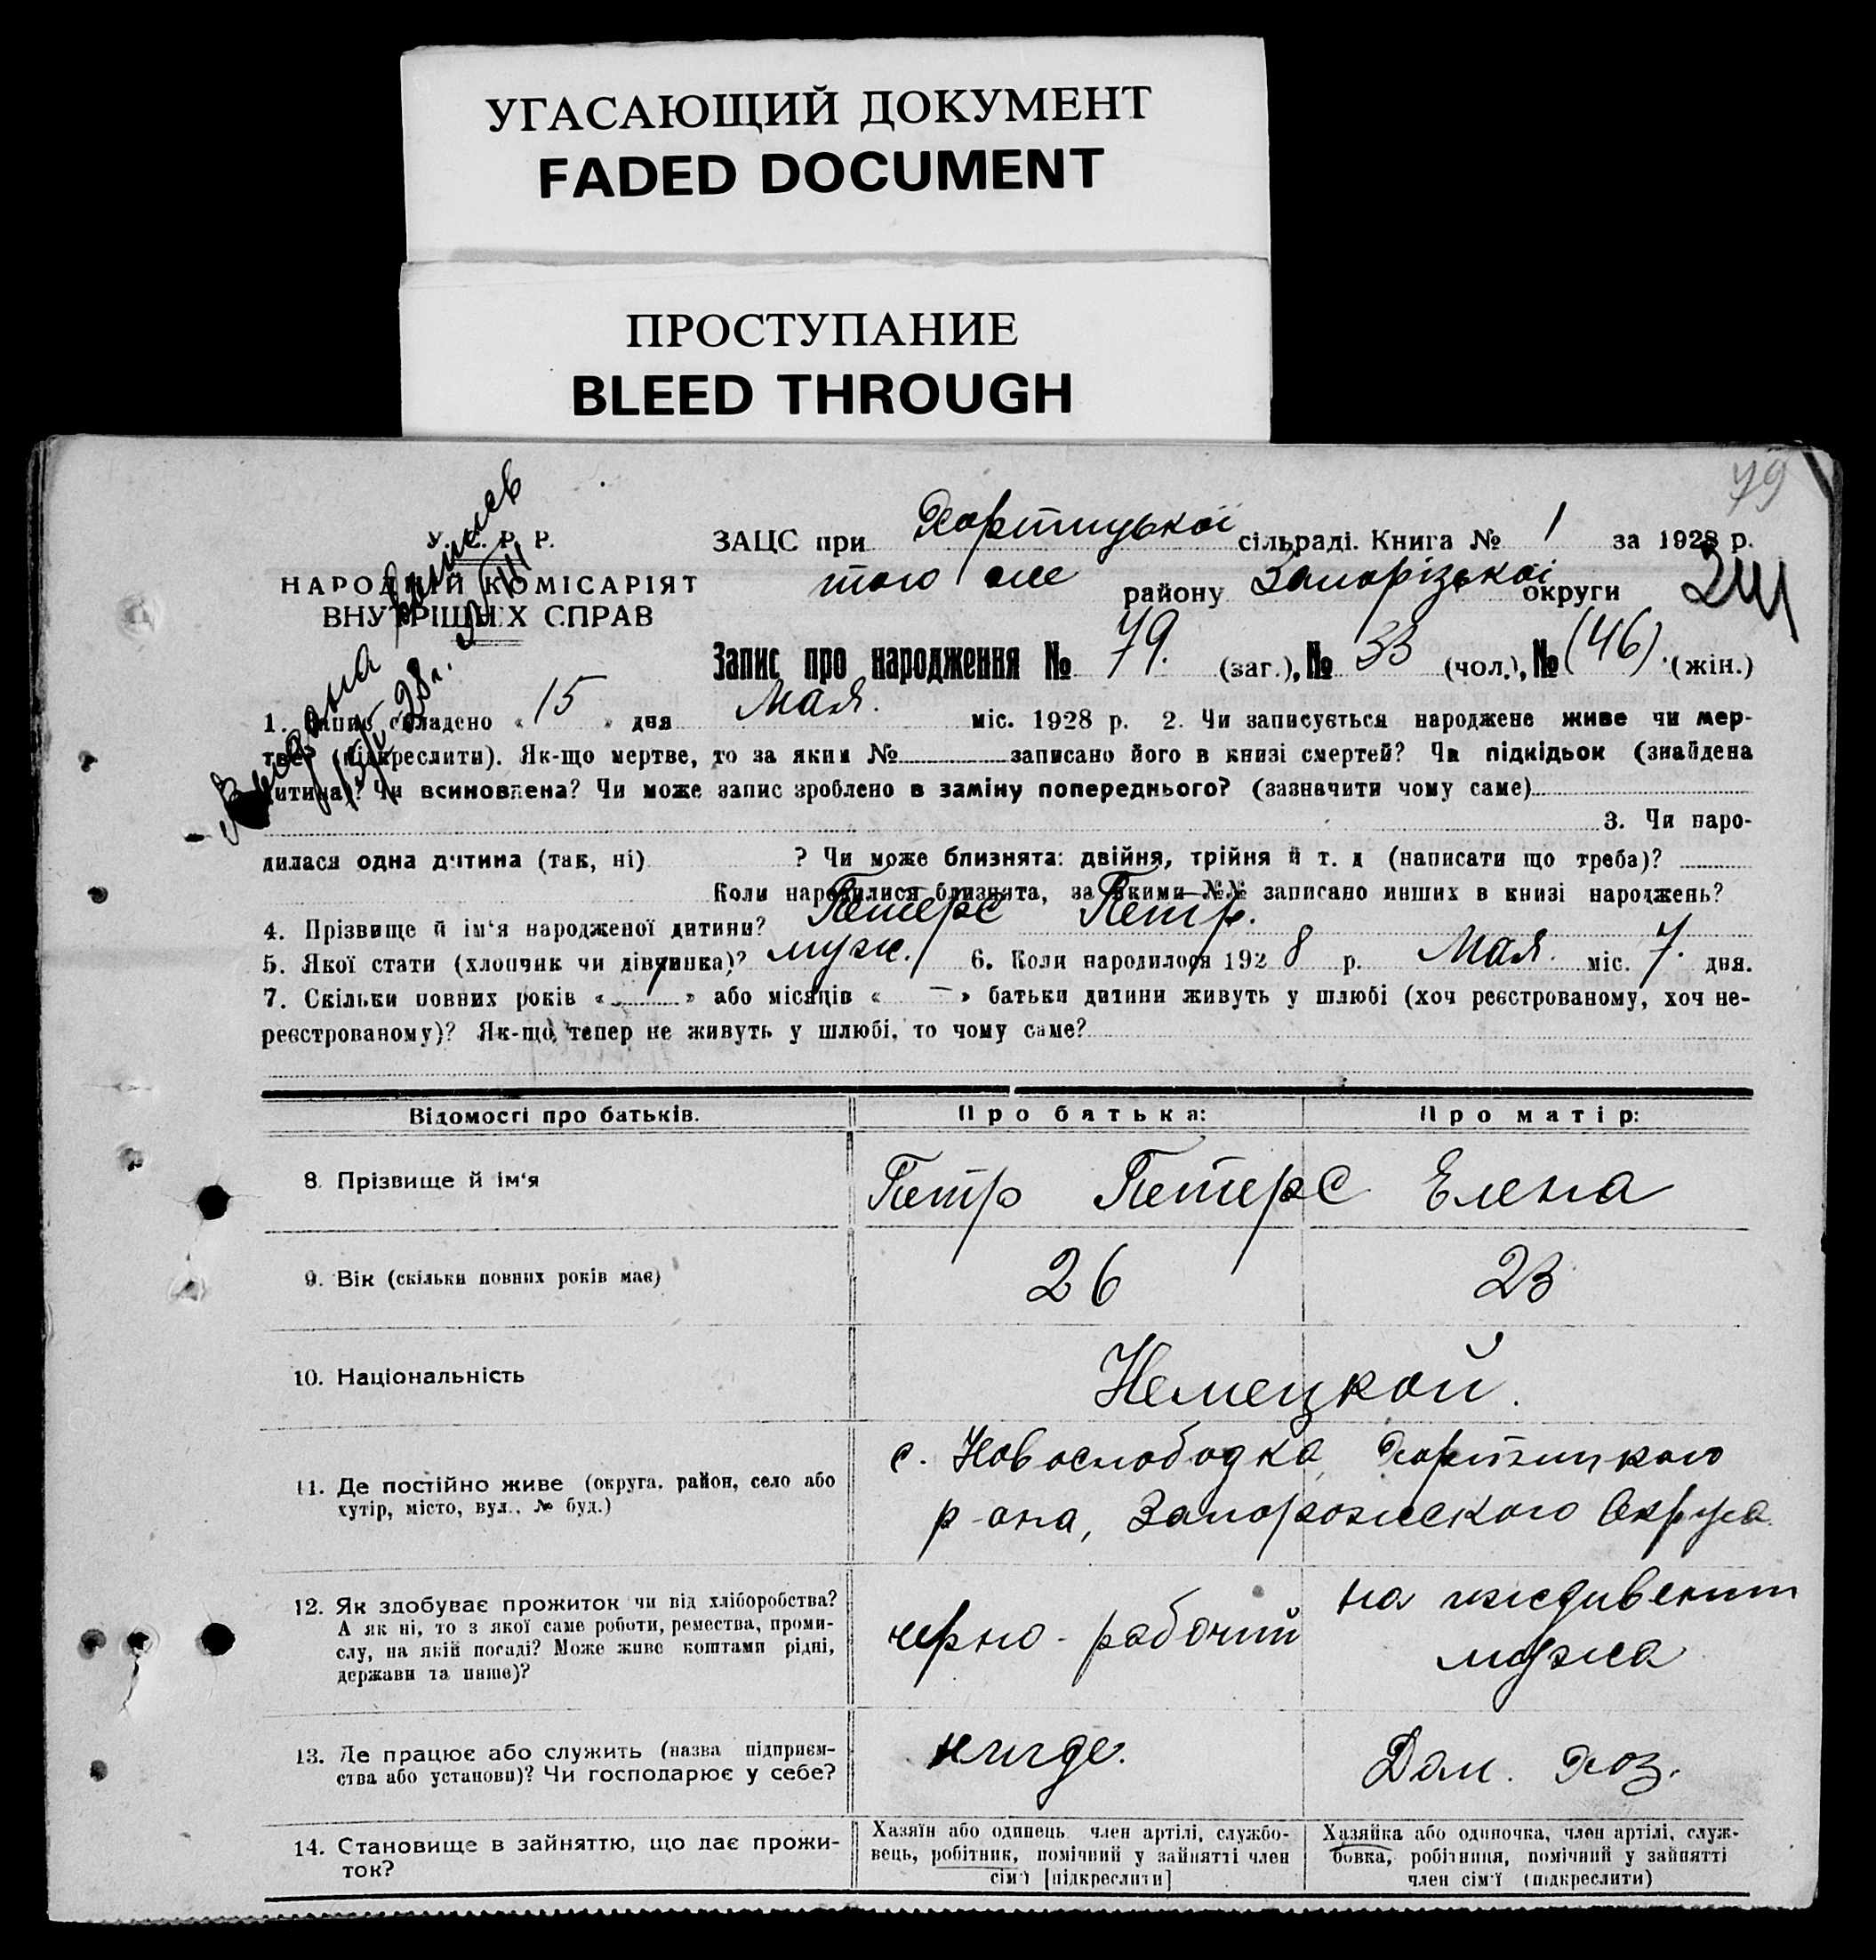 УГАСАЮЩИЙ ДОКУМЕНТ
FADED DOCUMENT
ПРОСТУПАНИЕ
BLEED THROUGH
79
У. С. Р. Р.
НАРОДНІЙ КОМІСАРІЯТ
ВНУТРІШНІХ СПРАВ
ЗАЦС при Хортицькоі сільраді. Книга № 1 за 1928 р.
того же району Запорізькоі округи
Запис про народження № 79. (заг.), № 33 (чол.), № (46). (жін.)
1. Запис складено « 15 » дня Мая. міс. 1928 р. 2. Чи записується народжене живе чи мер-
тве? (підкреслити). Як-що мертве, то за яким № записано його в книзі смертей? Чи підкідьок (знайдена
дитина)? Чи всиновлена? Чи може запис зроблено в заміну попереднього? (зазначити чому саме)
3. Чи наро-
дилася одна дитина (так, ні) ? Чи може близнята: двійня, трійня й т. д (написати що треба)?
Коли народилися близнята, за якими №№ записано инших в книзі народжень?
4. Прізвище й ім'я народженої дитини? Петерс Петр.
5. Якої стати (хлопчик чи дівчинка)? муж. 6. Коли народилося 1928 р. Мая. міс. 7. дня.
7. Скільки повних років « » або місяців « — » батьки дитини живуть у шлюбі (хоч реєстрованому, хоч не-
реєстрованому)? Як-що тепер не живуть у шлюбі, то чому саме?
Відомості про батьків. Про батька: Про матір:
8. Прізвище й ім'я Петр Петерс Елена
9. Вік (скільки повних років має) 26 23
10. Національність Немецкой.
11. Де постійно живе (округа, район, село або
хутір, місто, вул., № буд.)
с. Новослободка, Хортицкого
р-она, Запорожского Округа.
12. Як здобуває прожиток чи від хліборобства?
А як ні, то з якої саме роботи, ремества, проми-
слу, на якій посаді? Може живе коштами рідні,
держави та инше)?
черно-рабочий
на иждивении
мужа
13. Де працює або служить (назва підприєм-
ства або установи)? Чи господарює у себе?
нигде.
Дом. Хоз.
14. Становище в зайняттю, що дає прожи-
ток?
Хазяїн або одинець, член артілі, службо-
вець, робітник, помічний у зайнятті член
сім'ї [підкреслити]
Хазяйка або одиночка, член артілі, служ-
бовка, робітниця, помічний у зайнятті
член сім'ї (підкреслити)